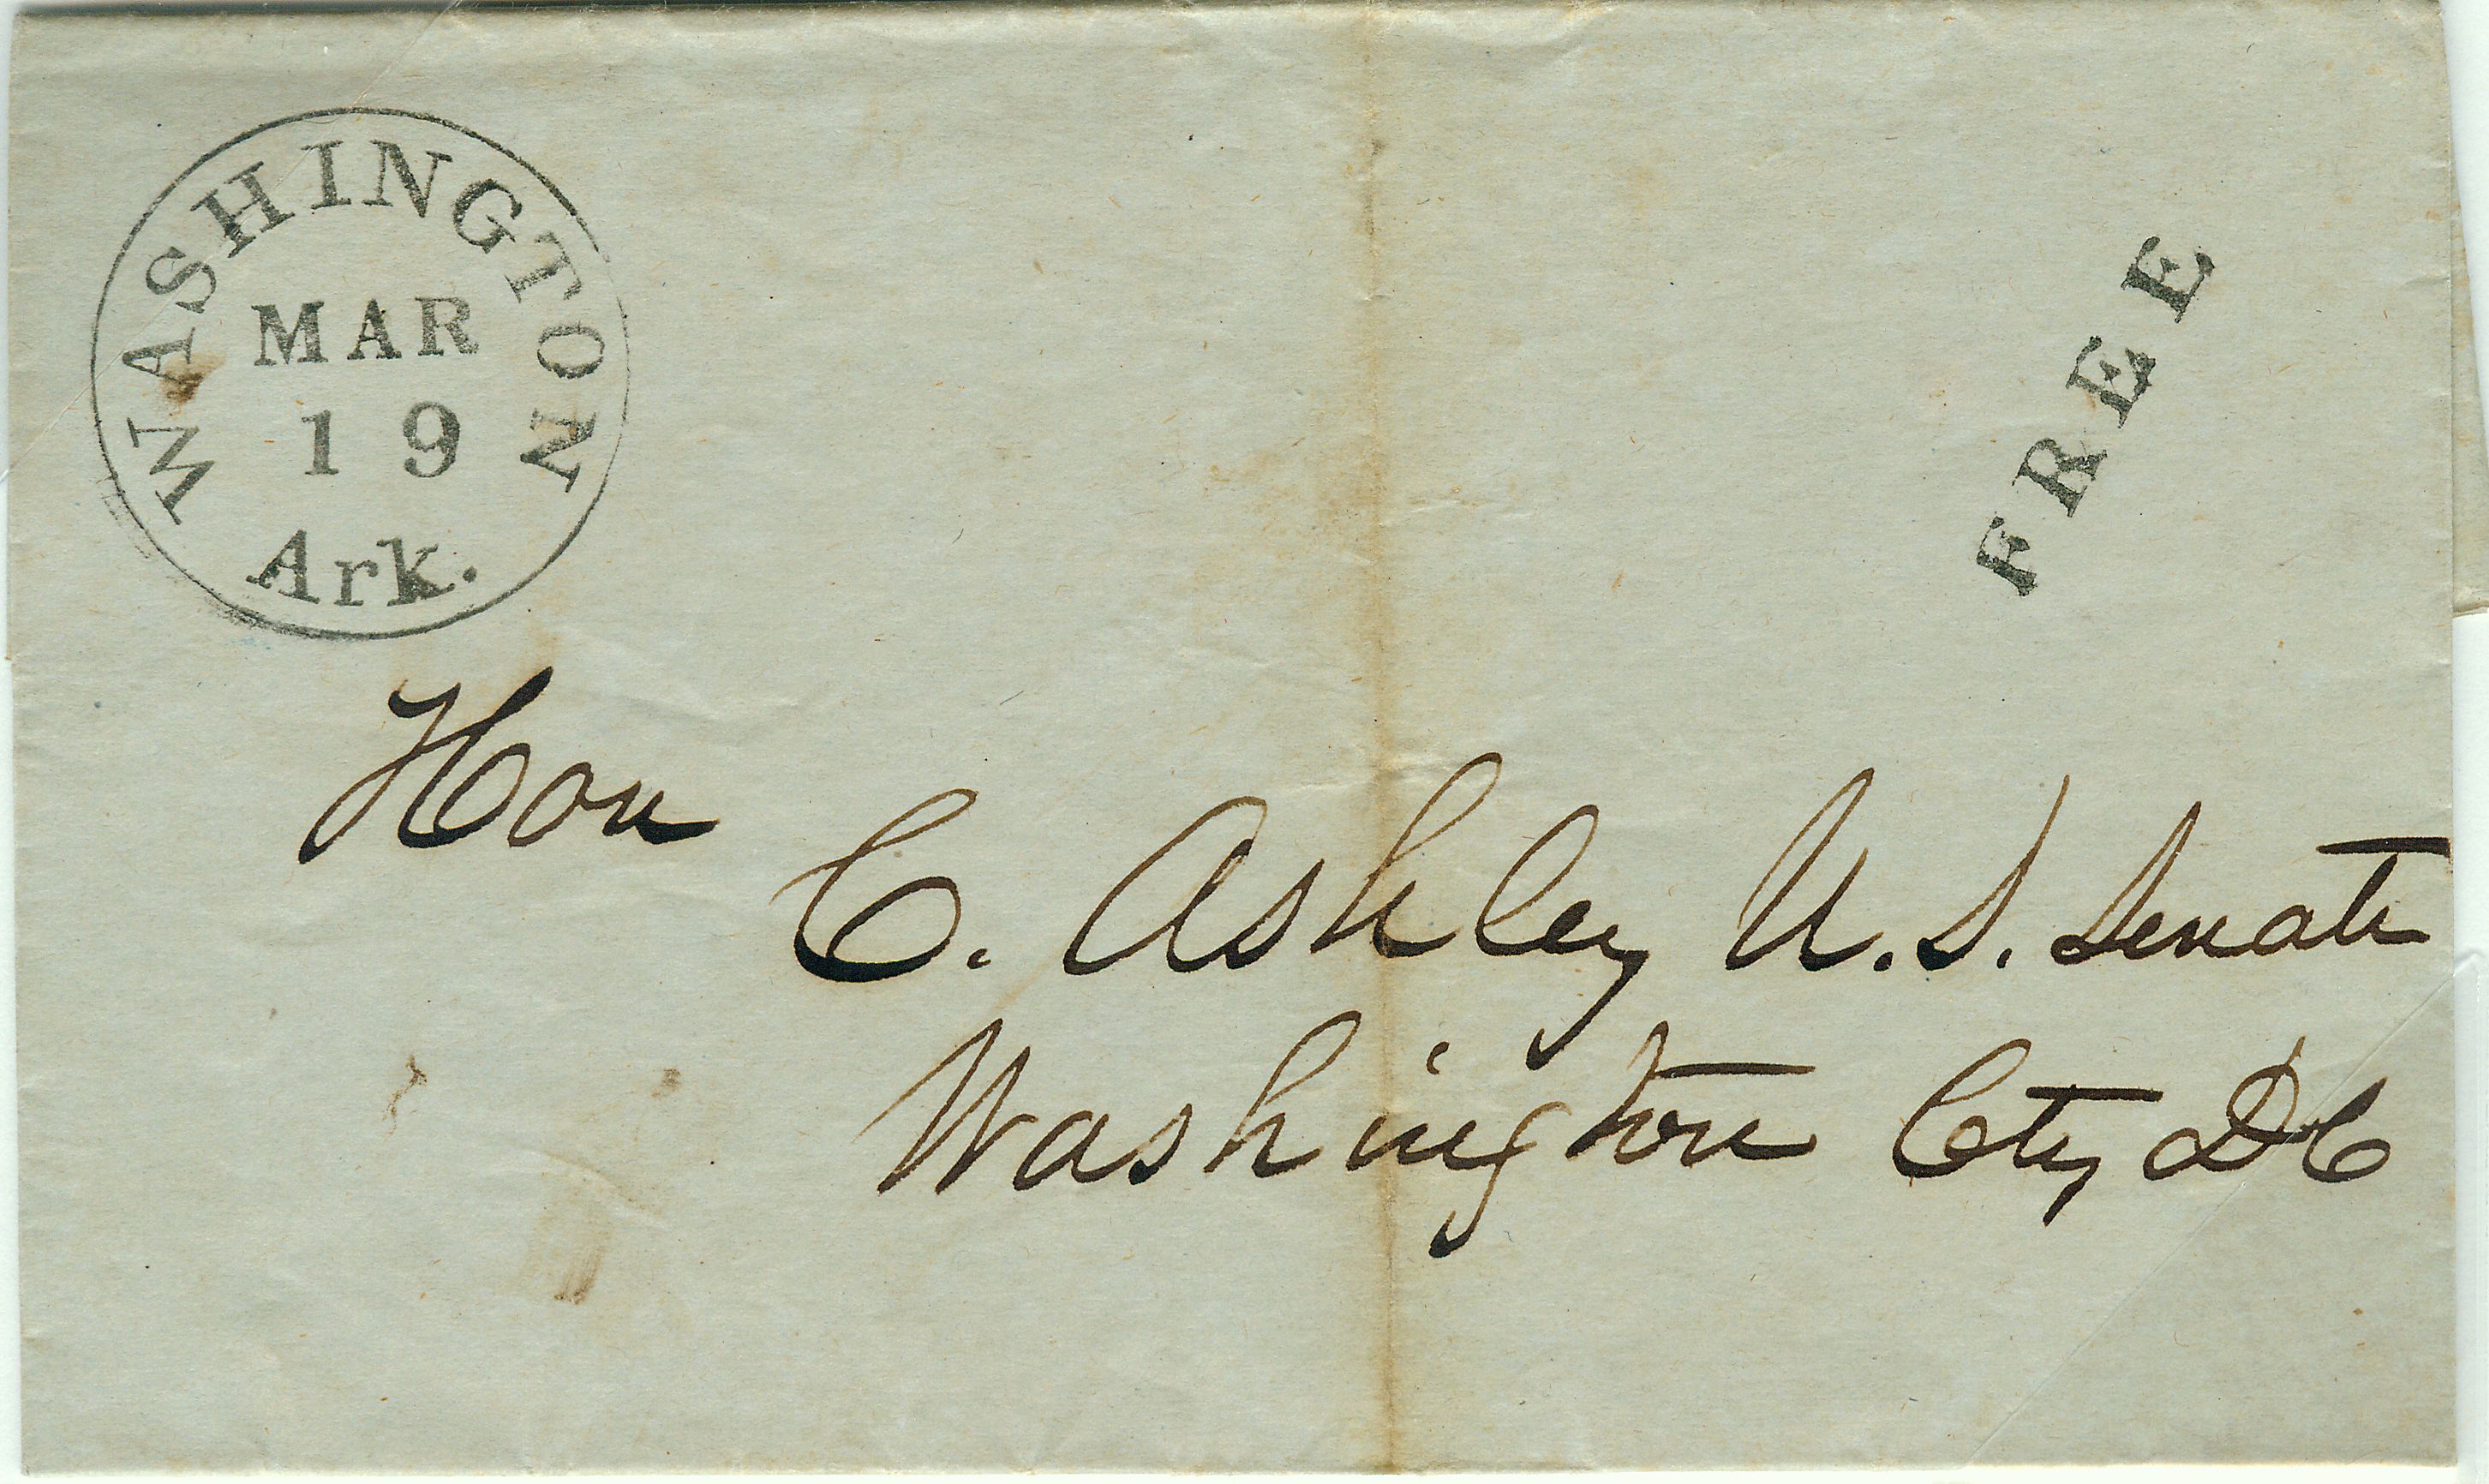 WASHINGTON
MAR
19
Ark.
FREE
Hon
C. Ashley U.S. Senate
Washington Cty DC